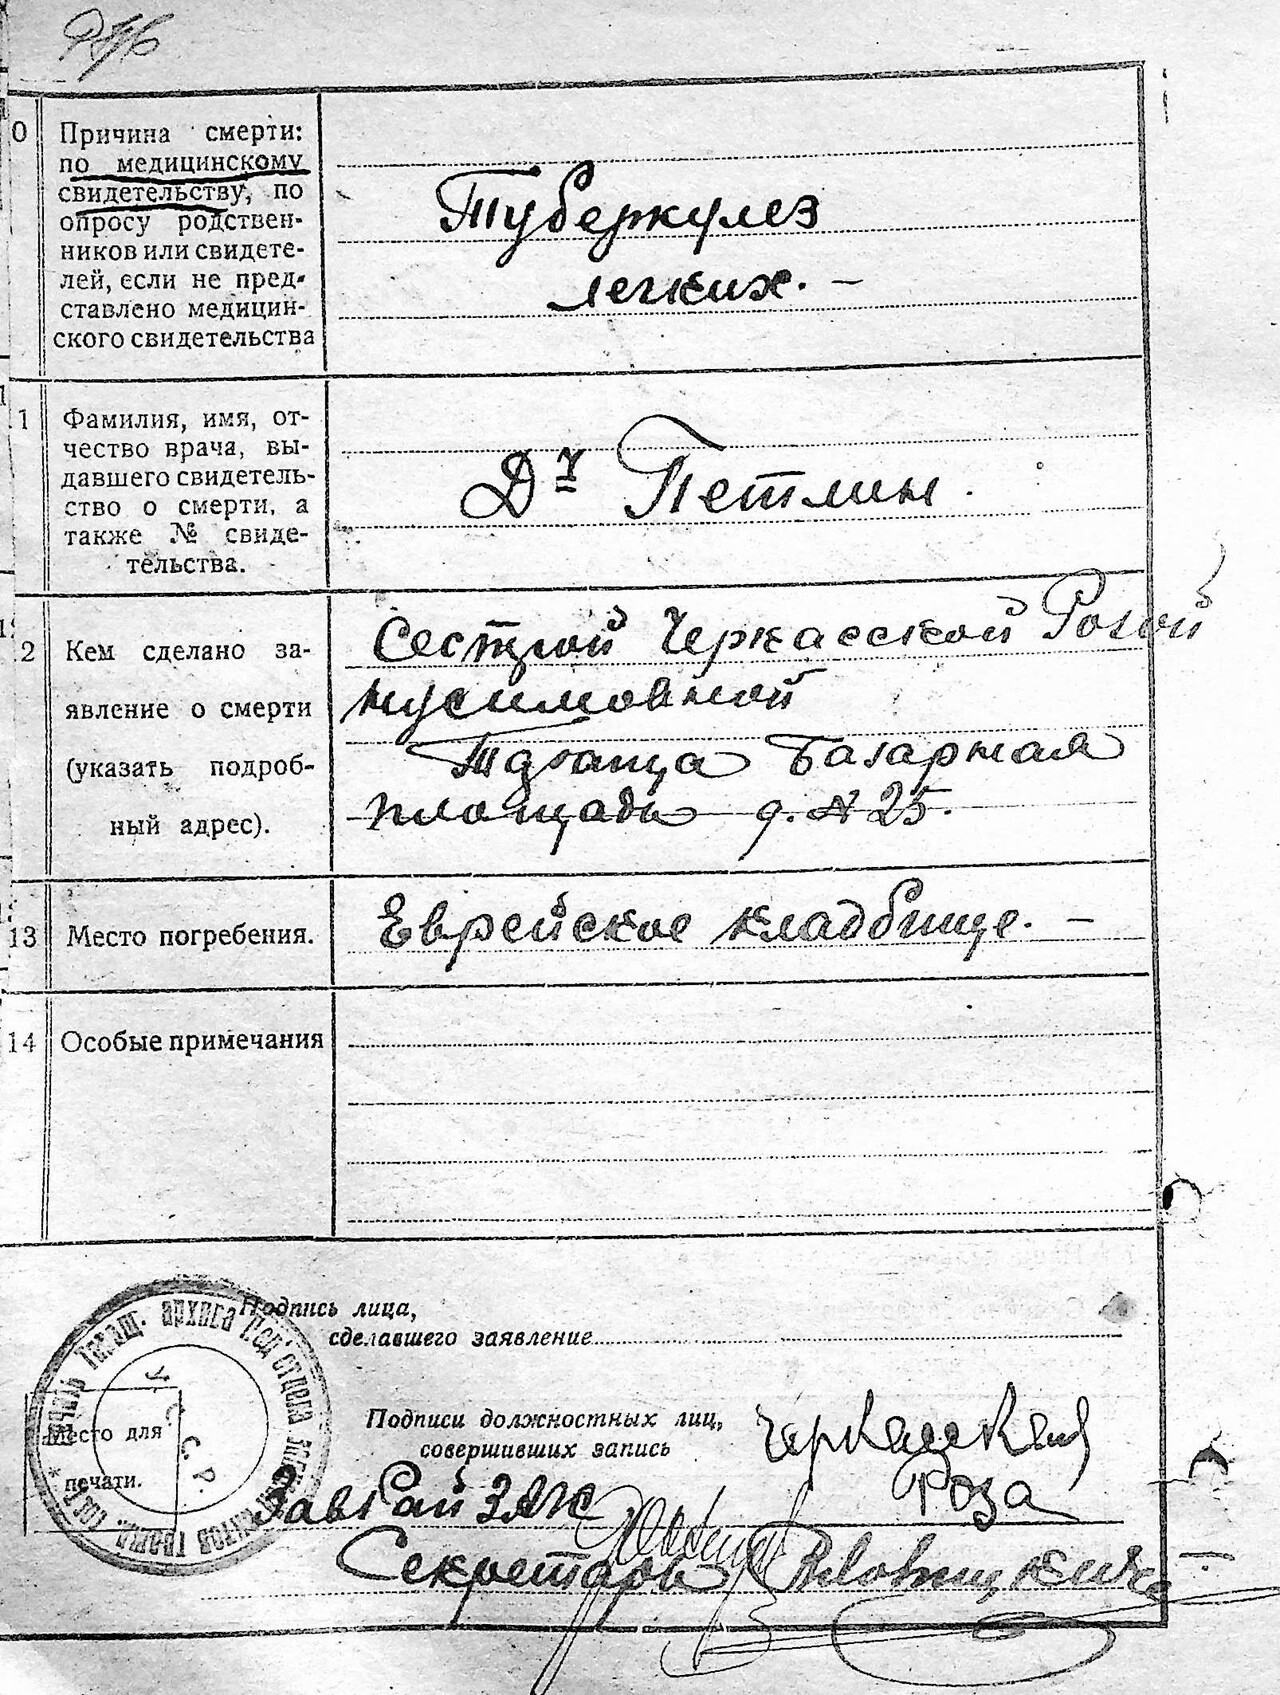 0 Причина смерти:
по медицинскому
свидетельству, по
опросу родствен-
ников или свидете-
лей, если не пред-
ставлено медицин-
ского свидетельства
Туберкулез
легких. —
1 Фамилия, имя, от-
чество врача, вы-
давшего свидетель-
ство о смерти, а
также № свиде-
тельства.
Д-р Петлин.
2 Кем сделано за-
явление о смерти
(указать подроб-
ный адрес).
Сестрой Черкасской Розой
Нусимовной
Тараща Базарная
площадь д. № 25.
13 Место погребения.
Еврейское кладбище. —
14 Особые примечания
Подпись лица,
сделавшего заявление
Подписи должностных лиц,
совершивших запись
Черкасская
Роза
Место для
печати.
У.С.С.Р.
ЗавРайЗАГС
Секретарь